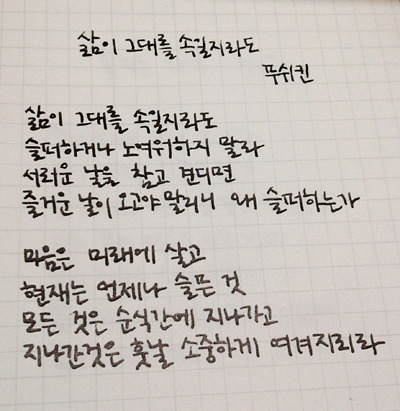 삶이 그대를 속일지라도
푸쉬킨
삶이 그대를 속일지라도
슬퍼하거나 노여워하지 말라
서러운 날을 참고 견디면
즐거운 날이 오고야 말리니 왜 슬퍼하는가
마음은 미래에 살고
현재는 언제나 슬픈 것
모든 것은 순식간에 지나가고
지나간것은 훗날 소중하게 여겨지리라